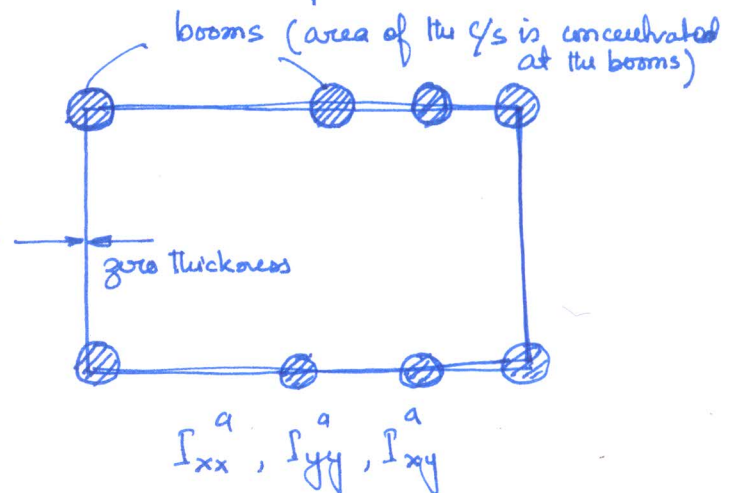 booms (area of the c/s is concentrated
at the booms)
zero thickness
I_xx^a , I_yy^a , I_xy^a